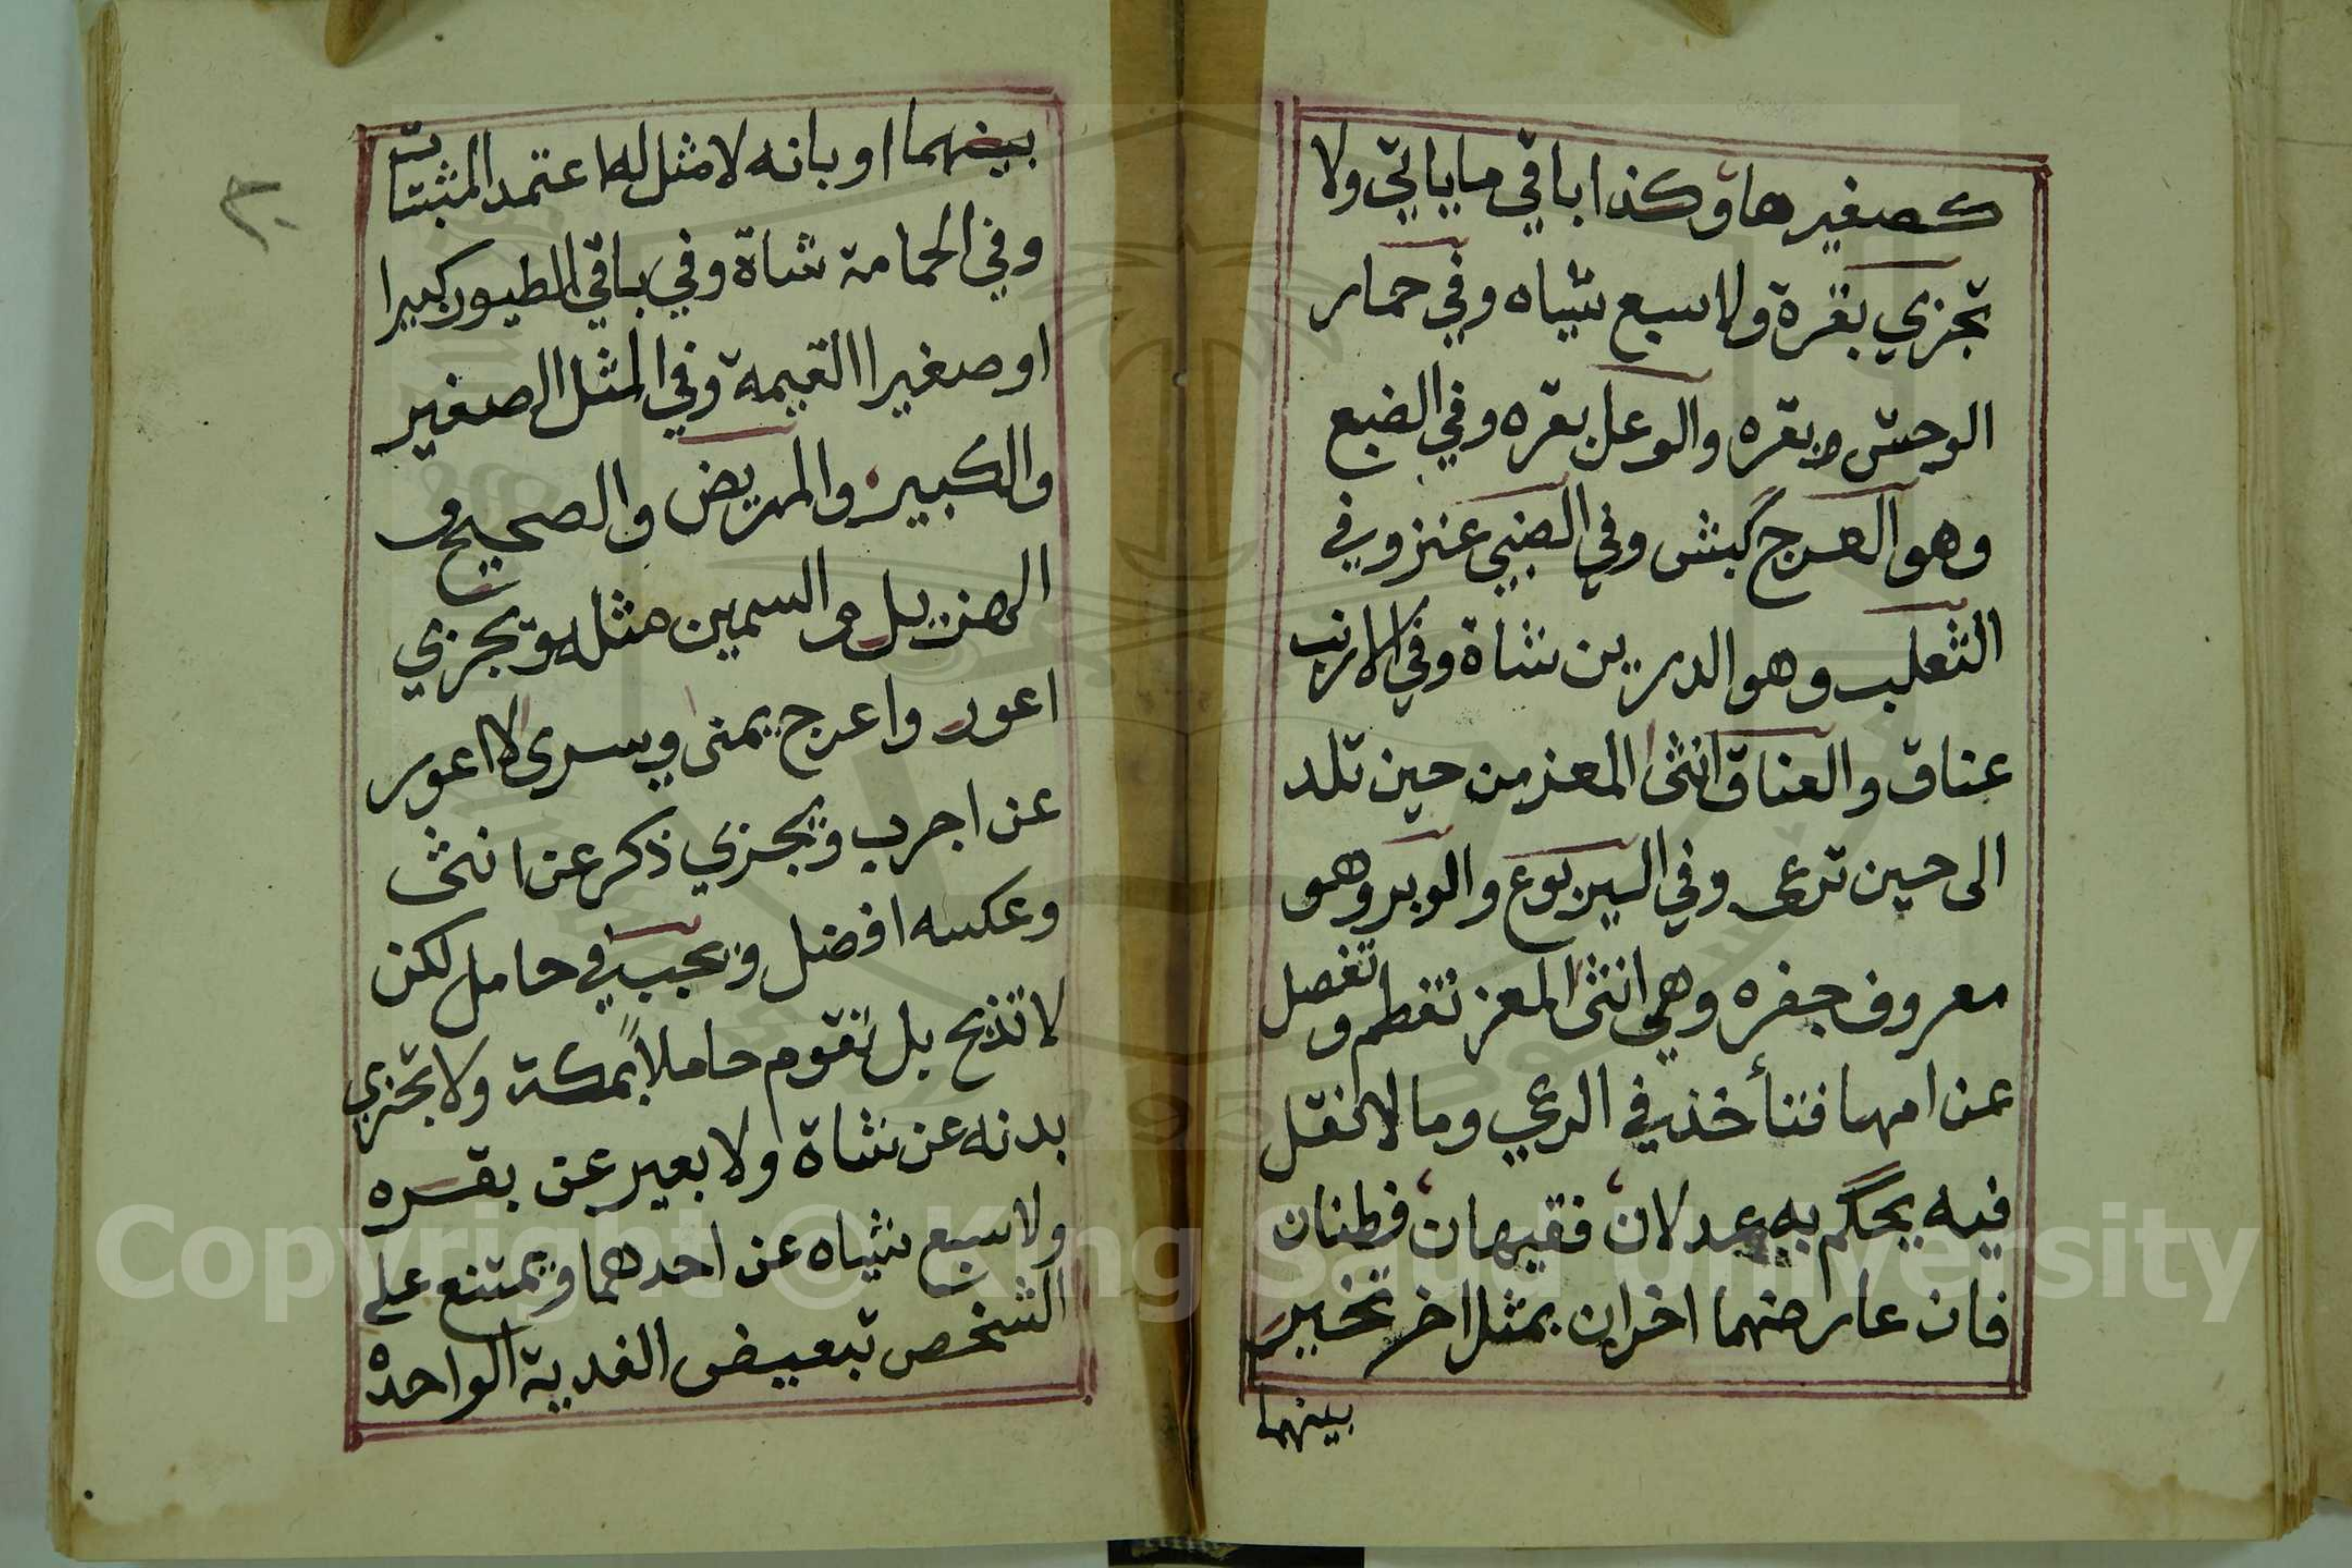 كصغيرها وكذا باقي ما ياتي ولا
تجزي بقرة ولا سبع شياه وفي حمار
الوحش وبقره والوعل بقره وفي الضبع
وهو العرج كبش وفي الضبي عنز وفي
الثعلب وهو الدرين شاة وفي الارنب
عناق والعناق انثى المعز من حين تلد
الى حين ترعى وفي اليربوع والوبر وهو
معروف جفره وهي انثى المعز تفطم وتفصل
عن امها فتأخذ في الرعي وما لا نقل
فيه يحكم به عدلان فقيهان فطنان
فان عارضهما اخران بمثل اخر تخير
بينهما
٢٠
بينهما او بانه لا مثل له اعتمد المثبتات
وفي الحمامة شاة وفي باقي الطيور كبيرا
او صغيرا القيمة وفي المثل الصغير
والكبير والمريض والصحيح و
الهزيل والسمين مثله وتجزي
اعور واعرج يمنى ويسرى لا اعور
عن اجرب ويجزي ذكر عن انثى
وعكسه افضل ويجب في حامل لكن
لا تذبح بل تقوم حاملاً بمكة ولا تجزي
بدنه عن شاة ولا بعير عن بقره
ولا سبع شياه عن احدهما ويمتنع على
الشخص تبعيض الفدية الواحده
Copyright © King Saud University